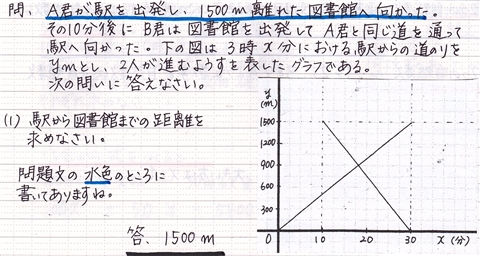 問、A君が駅を出発し、1500m離れた図書館へ向かった。
その10分後にB君は図書館を出発してA君と同じ道を通って
駅へ向かった。下の図は3時x分における駅からの道のりを
ymとし、2人が進むようすを表したグラフである。
次の問いに答えなさい。
(1) 駅から図書館までの距離を
求めなさい。
問題文の水色のところに
書いてありますね。
答、1500m
y
(m)
1500
1200
900
600
300
0 10 20 30 x(分)